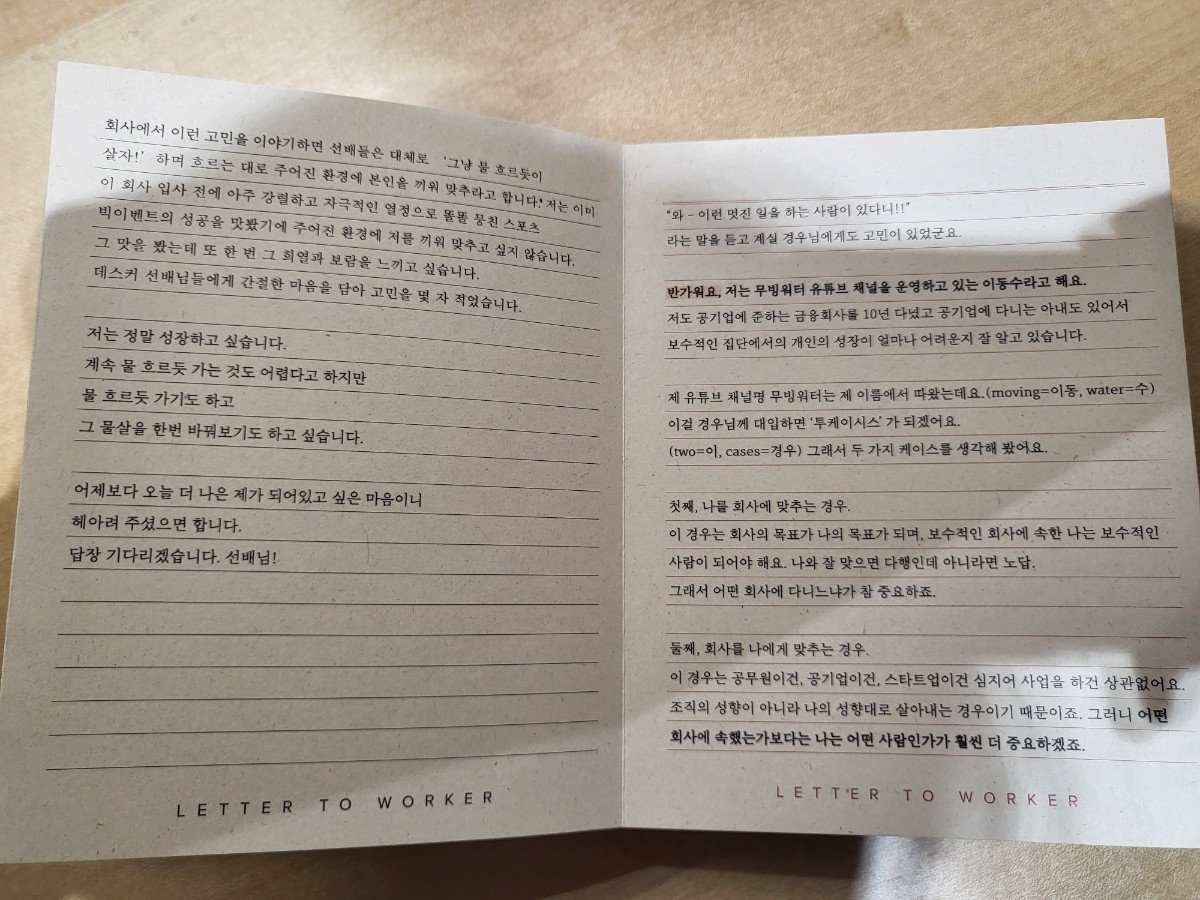 회사에서 이런 고민을 이야기하면 선배들은 대체로 '그냥 물 흐르듯이
살자!' 하며 흐르는 대로 주어진 환경에 본인을 끼워 맞추라고 합니다. 저는 이미
이 회사 입사 전에 아주 강렬하고 자극적인 열정으로 똘똘 뭉친 스포츠
빅이벤트의 성공을 맛봤기에 주어진 환경에 저를 끼워 맞추고 싶지 않습니다.
그 맛을 봤는데 또 한 번 그 희열과 보람을 느끼고 싶습니다.
데스커 선배님들에게 간절한 마음을 담아 고민을 몇 자 적었습니다.
저는 정말 성장하고 싶습니다.
계속 물 흐르듯 가는 것도 어렵다고 하지만
물 흐르듯 가기도 하고
그 물살을 한번 바꿔보기도 하고 싶습니다.
어제보다 오늘 더 나은 제가 되어있고 싶은 마음이니
헤아려 주셨으면 합니다.
답장 기다리겠습니다. 선배님!
LETTER TO WORKER
"와 - 이런 멋진 일을 하는 사람이 있다니!!"
라는 말을 듣고 계실 경우님에게도 고민이 있었군요.
반가워요, 저는 무빙워터 유튜브 채널을 운영하고 있는 이동수라고 해요.
저도 공기업에 준하는 금융회사를 10년 다녔고 공기업에 다니는 아내도 있어서
보수적인 집단에서의 개인의 성장이 얼마나 어려운지 잘 알고 있습니다.
제 유튜브 채널명 무빙워터는 제 이름에서 따왔는데요.(moving=이동, water=수)
이걸 경우님께 대입하면 '투케이시스' 가 되겠어요.
(two=이, cases=경우) 그래서 두 가지 케이스를 생각해 봤어요.
첫째, 나를 회사에 맞추는 경우.
이 경우는 회사의 목표가 나의 목표가 되며, 보수적인 회사에 속한 나는 보수적인
사람이 되어야 해요. 나와 잘 맞으면 다행인데 아니라면 노답.
그래서 어떤 회사에 다니느냐가 참 중요하죠.
둘째, 회사를 나에게 맞추는 경우.
이 경우는 공무원이건, 공기업이건, 스타트업이건 심지어 사업을 하건 상관없어요.
조직의 성향이 아니라 나의 성향대로 살아내는 경우이기 때문이죠. 그러니 어떤
회사에 속했는가보다는 나는 어떤 사람인가가 훨씬 더 중요하겠죠.
LETTER TO WORKER